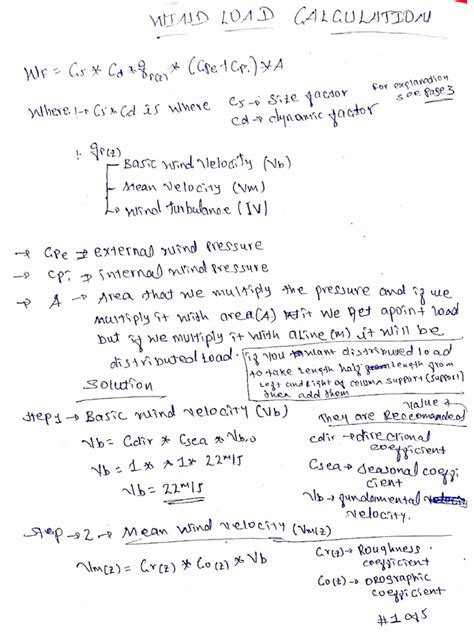 WIND LOAD CALCULATION
WF = Cs * Cd * qp(z) * (Cpe + Cpi) * A
Where:→ Cs * Cd is where Cs → Size factor
Cd → dynamic factor
For explanation
see page 3
: qp(z)
Basic wind velocity (Vb)
Mean velocity (Vm)
Wind turbulance (IV)
→ Cpe → external wind pressure
→ Cpi → internal wind pressure
→ A → Area that we multiply the pressure and if we
multiply it with area(A) it we get apoint load
but if we multiply it with aline (m) it will be
distributed load.
if you want distributed load
to take length half length from
left and right of column support (support)
then add them
Solution
Step 1 → Basic wind velocity (Vb)
value &
They are Reccomanded
Vb = Cdir * Csea * Vb,0
Vb = 1 * 1 * 22m/s
Vb = 22m/s
cdir → directional
coefficient
Csea → seasonal coeffi
cient
Vb → fundamental
velocity.
Step → 2 → Mean wind velocity (Vm(z))
Vm(z) = Cr(z) * Co(z) * Vb
Cr(z) → Roughness
coefficient
Co(z) → orographic
coefficient
# 1 of 5